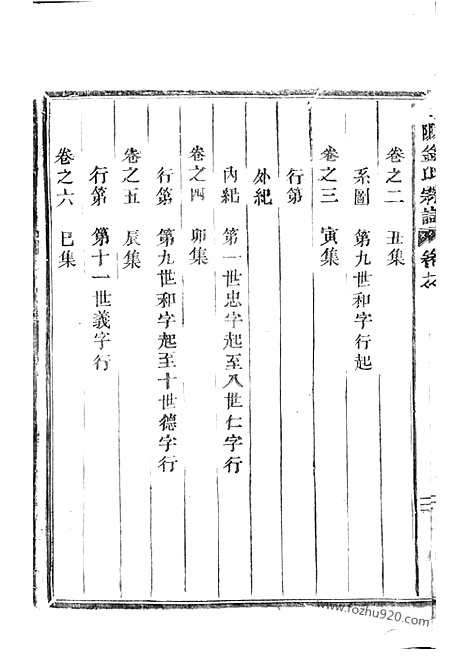 金氏宗譜 卷之
卷之二 丑集
系圖 第九世和字行起
卷之三 寅集
行第
外紀
內紀 第一世忠字起至八世仁字行
卷之四 卯集
行第 第九世和字起至十世德字行
卷之五 辰集
行第 第十一世義字行
卷之六 巳集
www.fozhu920.com